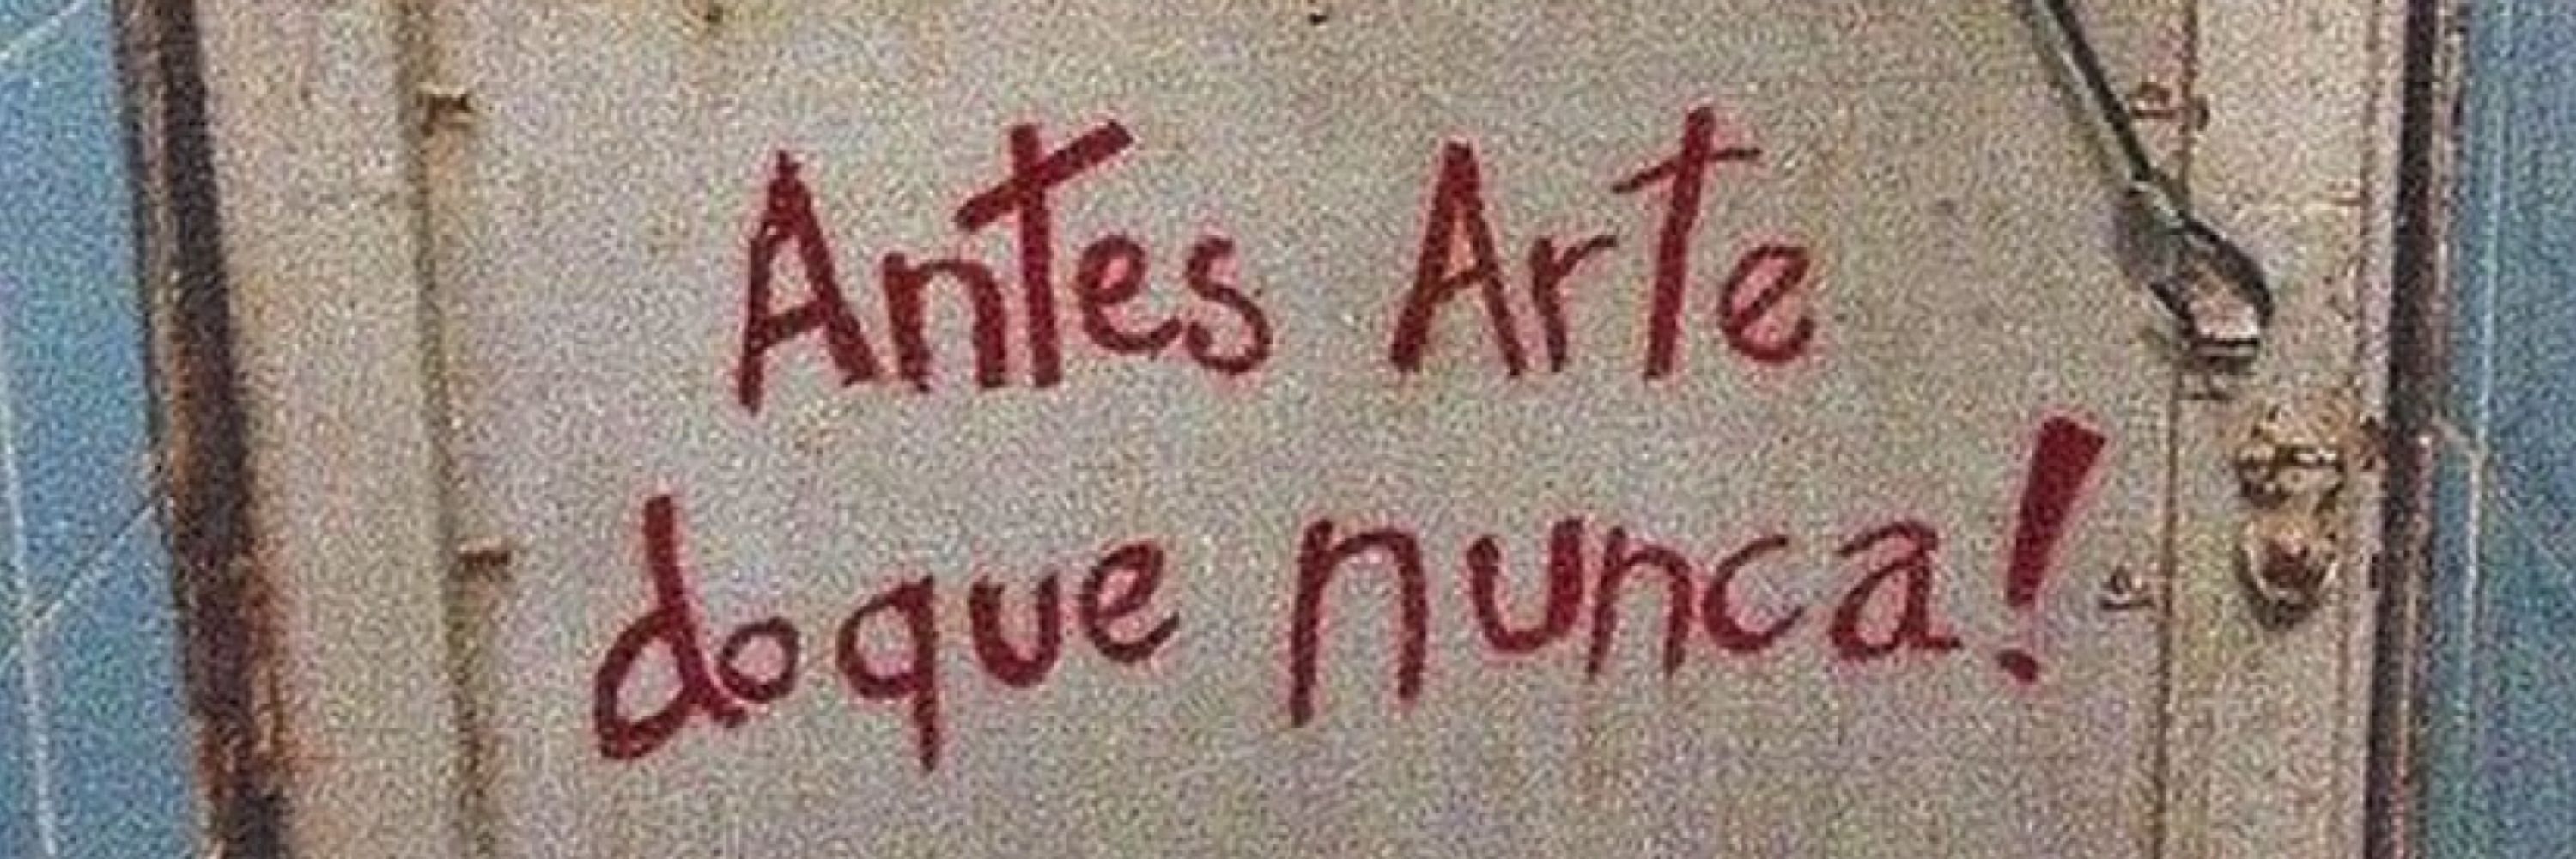 Antes Arte
doque nunca!